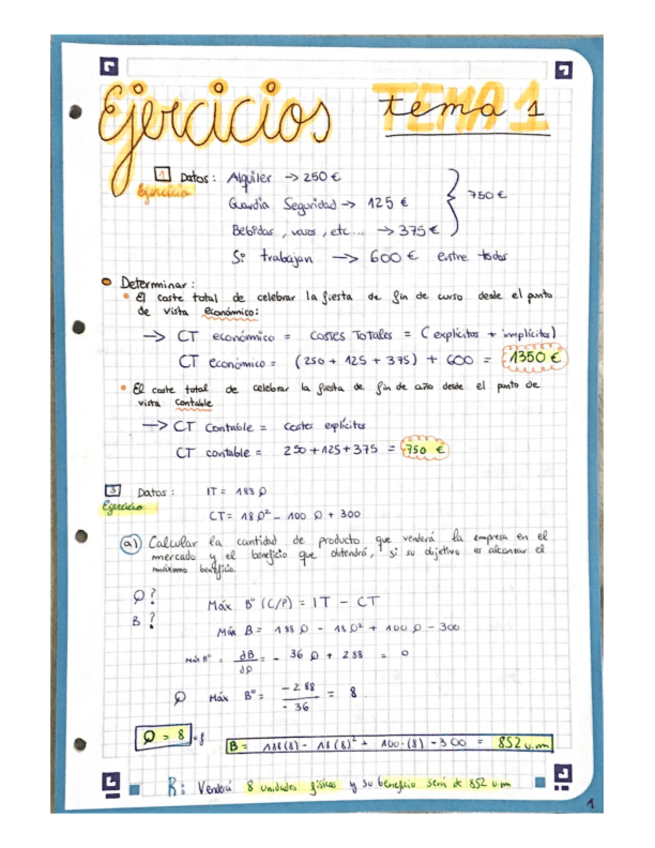 Ejercicios TEMA 1 tema 1
1 Datos: Alquiler → 250 €
Ejercicio
Guardia Seguridad → 125 €
750 €
Bebidas, vasos, etc... → 375 €
Si trabajan → 600 € entre todos
Determinar:
El coste total de celebrar la fiesta de fin de curso desde el punto
de vista económico:
→ CT económico = COSTES TOTALES = (explícitos + implícitos)
CT Económico = (250 + 125 + 375) + 600 = 1350 €
El coste total de celebrar la fiesta de fin de año desde el punto de
vista contable
→ CT Contable = Costes explícitos
CT contable = 250 + 125 + 375 = 750 €
3 Datos: IT = 188 Q
Ejercicio
CT = 18 Q² - 100 Q + 300
a) Calcular la cantidad de producto que venderá la empresa en el
mercado y el beneficio que obtendrá, si su objetivo es alcanzar el
máximo beneficio.
Q?
Máx Bº (C/P) = IT - CT
B?
Máx B = 188 Q - 18 Q² + 100 Q - 300
Máx Bº = dB/dQ = - 36 Q + 288 = 0
Q Máx Bº = -288/-36 = 8
Q = 8 uf
B = 188(8) - 18(8)² + 100·(8) - 300 = 852 u.m
R: Venderá 8 unidades físicas y su beneficio será de 852 u.m
1